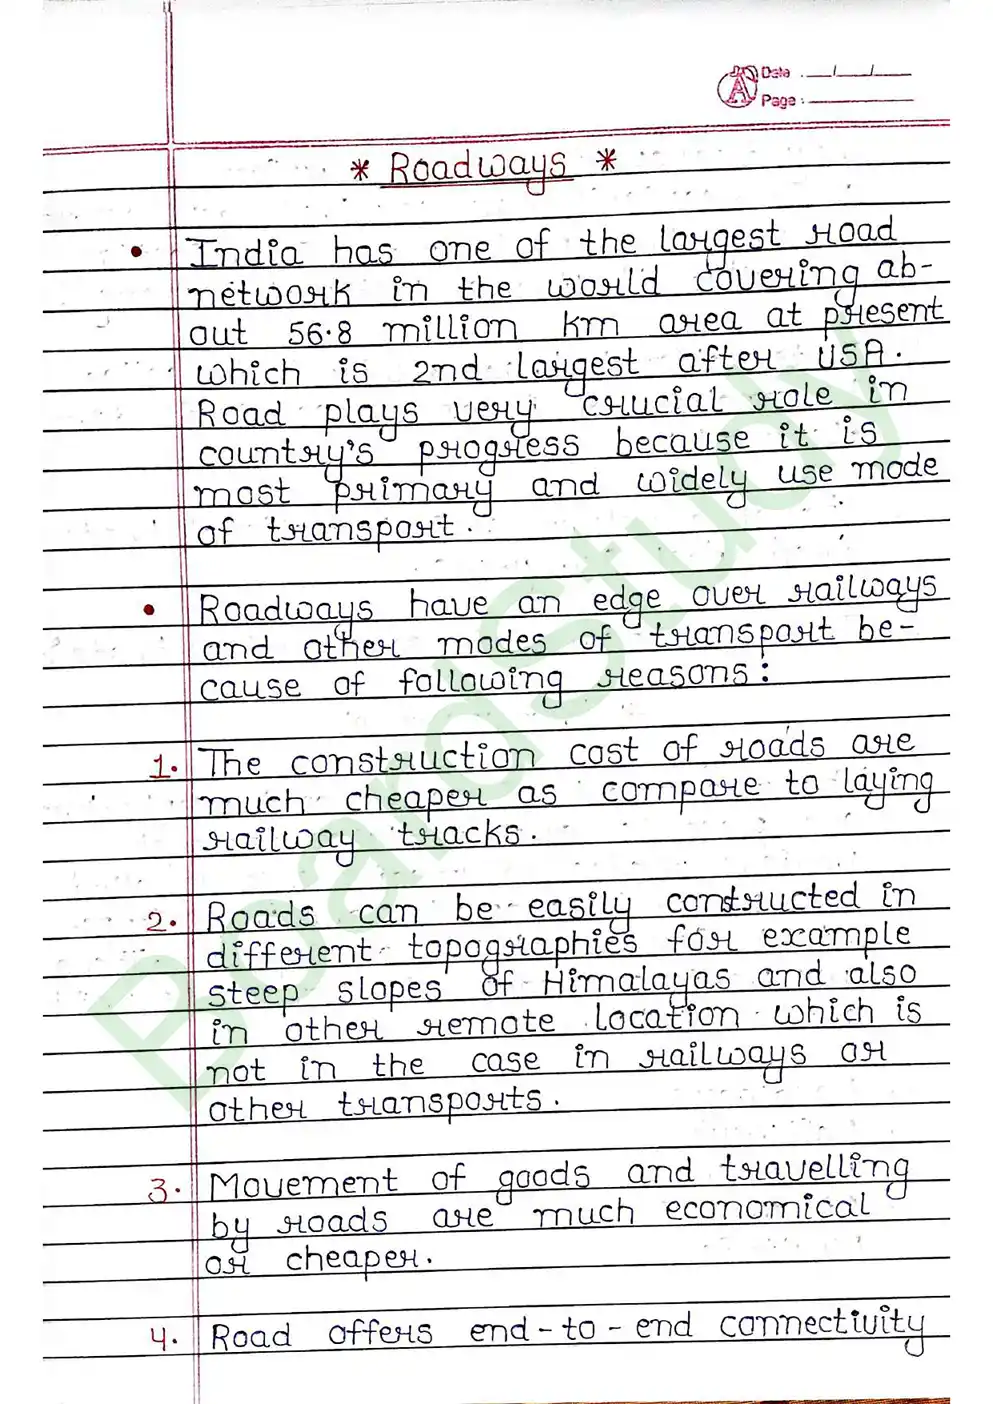 Date : __/__/__
Page :
* Roadways *
• India has one of the largest road
network in the world covering ab-
out 56.8 million km area at present
which is 2nd largest after USA.
Road plays very crucial role in
country's progress because it is
most primary and widely use mode
of transport.
• Roadways have an edge over railways
and other modes of transport be-
cause of following reasons:
1. The construction cost of roads are
much cheaper as compare to laying
railway tracks.
2. Roads can be easily constructed in
different topographies for example
steep slopes of Himalayas and also
in other remote location which is
not in the case in railways or
other transports.
3. Movement of goods and travelling
by roads are much economical
or cheaper.
4. Road offers end-to-end connectivity
BoardStudy